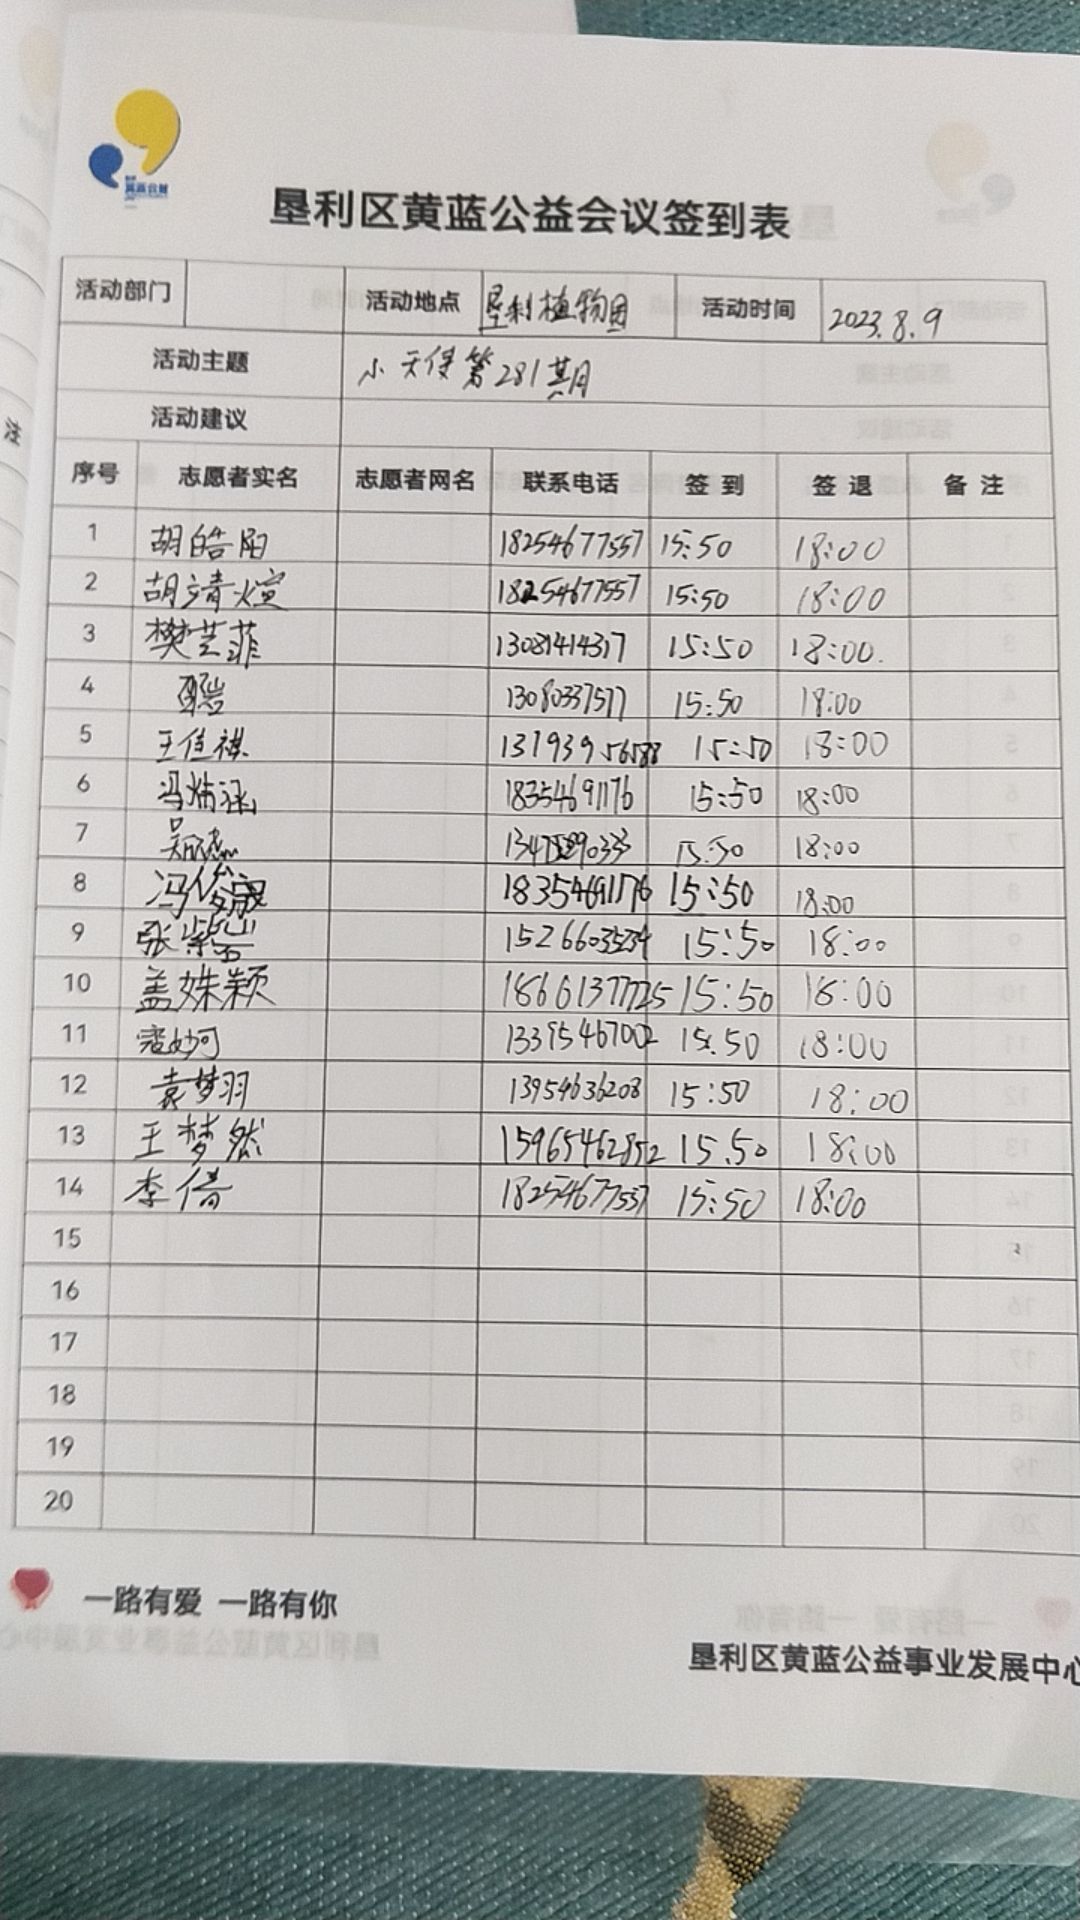 黄蓝公益
垦利区黄蓝公益会议签到表
活动部门 活动地点 垦利植物园 活动时间 2023.8.9
活动主题 小天使第281期
活动建议
序号 志愿者实名 志愿者网名 联系电话 签到 签退 备注
1 胡皓阳 18254677557 15:50 18:00
2 胡靖煊 18254677557 15:50 18:00
3 樊芸菲 13081414317 15:50 18:00.
4 13080337577 15:50 18:00
5 王佳祺 15:50 18:00
6 冯炳涵 18354691176 15:50 18:00
7 15:50 18:00
8 18354691176 15:50 18:00
9 张紫 1526603534 15:50 18:00
10 盖姝颖 18661377725 15:50 18:00
11 寇妙可 13395467002 15:50 18:00
12 袁梦羽 13954636208 15:50 18:00
13 王梦然 15965462852 15.50 18:00
14 李倩 18254677557 15:50 18:00
15
16
17
18
19
20
一路有爱 一路有你
垦利区黄蓝公益事业发展中心
注